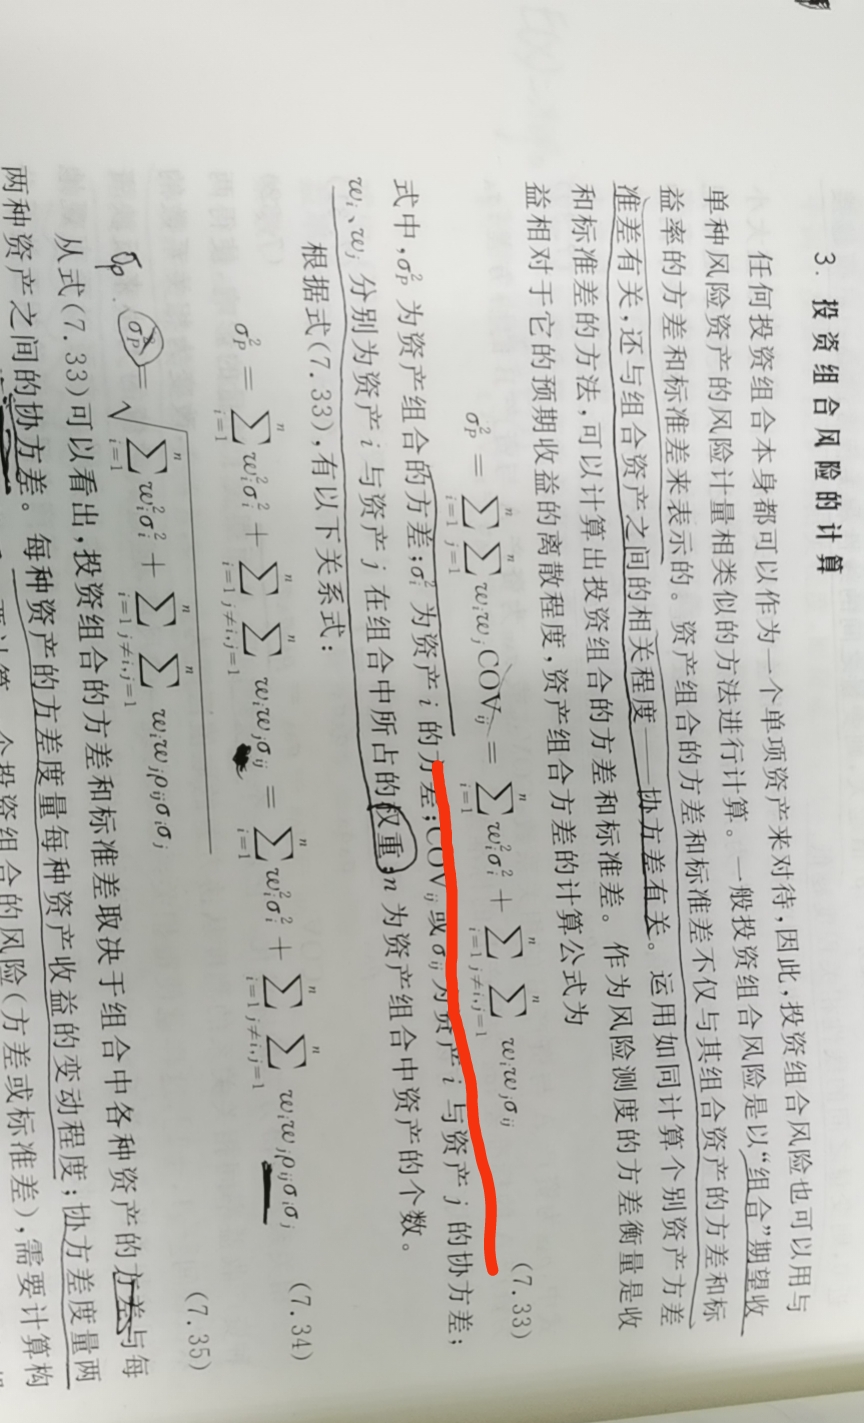 3. 投资组合风险的计算
任何投资组合本身都可以作为一个单项资产来对待,因此,投资组合风险也可以用与
单种风险资产的风险计量相类似的方法进行计算。一般投资组合风险是以“组合”期望收
益率的方差和标准差来表示的。资产组合的方差和标准差不仅与其组合资产的方差和标
准差有关,还与组合资产之间的相关程度——协方差有关。运用如同计算个别资产方差
和标准差的方法,可以计算出投资组合的方差和标准差。作为风险测度的方差衡量是收
益相对于它的预期收益的离散程度,资产组合方差的计算公式为
σ_P^2 = ∑_{i=1}^n ∑_{j=1}^n w_i w_j COV_{ij} = ∑_{i=1}^n w_i^2 σ_i^2 + ∑_{i=1}^n ∑_{j≠i,j=1}^n w_i w_j σ_{ij} (7.33)
式中,σ_P^2 为资产组合的方差;σ_i^2 为资产 i 的方差;COV_{ij} 或 σ_{ij} 为资产 i 与资产 j 的协方差;
w_i、w_j 分别为资产 i 与资产 j 在组合中所占的权重;n 为资产组合中资产的个数。
根据式(7.33),有以下关系式:
σ_P^2 = ∑_{i=1}^n w_i^2 σ_i^2 + ∑_{i=1}^n ∑_{j≠i,j=1}^n w_i w_j σ_{ij} = ∑_{i=1}^n w_i^2 σ_i^2 + ∑_{i=1}^n ∑_{j≠i,j=1}^n w_i w_j ρ_{ij} σ_i σ_j (7.34)
σ_P
σ_P^2 = √(∑_{i=1}^n w_i^2 σ_i^2 + ∑_{i=1}^n ∑_{j≠i,j=1}^n w_i w_j ρ_{ij} σ_i σ_j) (7.35)
从式(7.33)可以看出,投资组合的方差和标准差取决于组合中各种资产的方差与每
两种资产之间的协方差。每种资产的方差度量每种资产收益的变动程度;协方差度量两
个投资组合的风险(方差或标准差),需要计算构